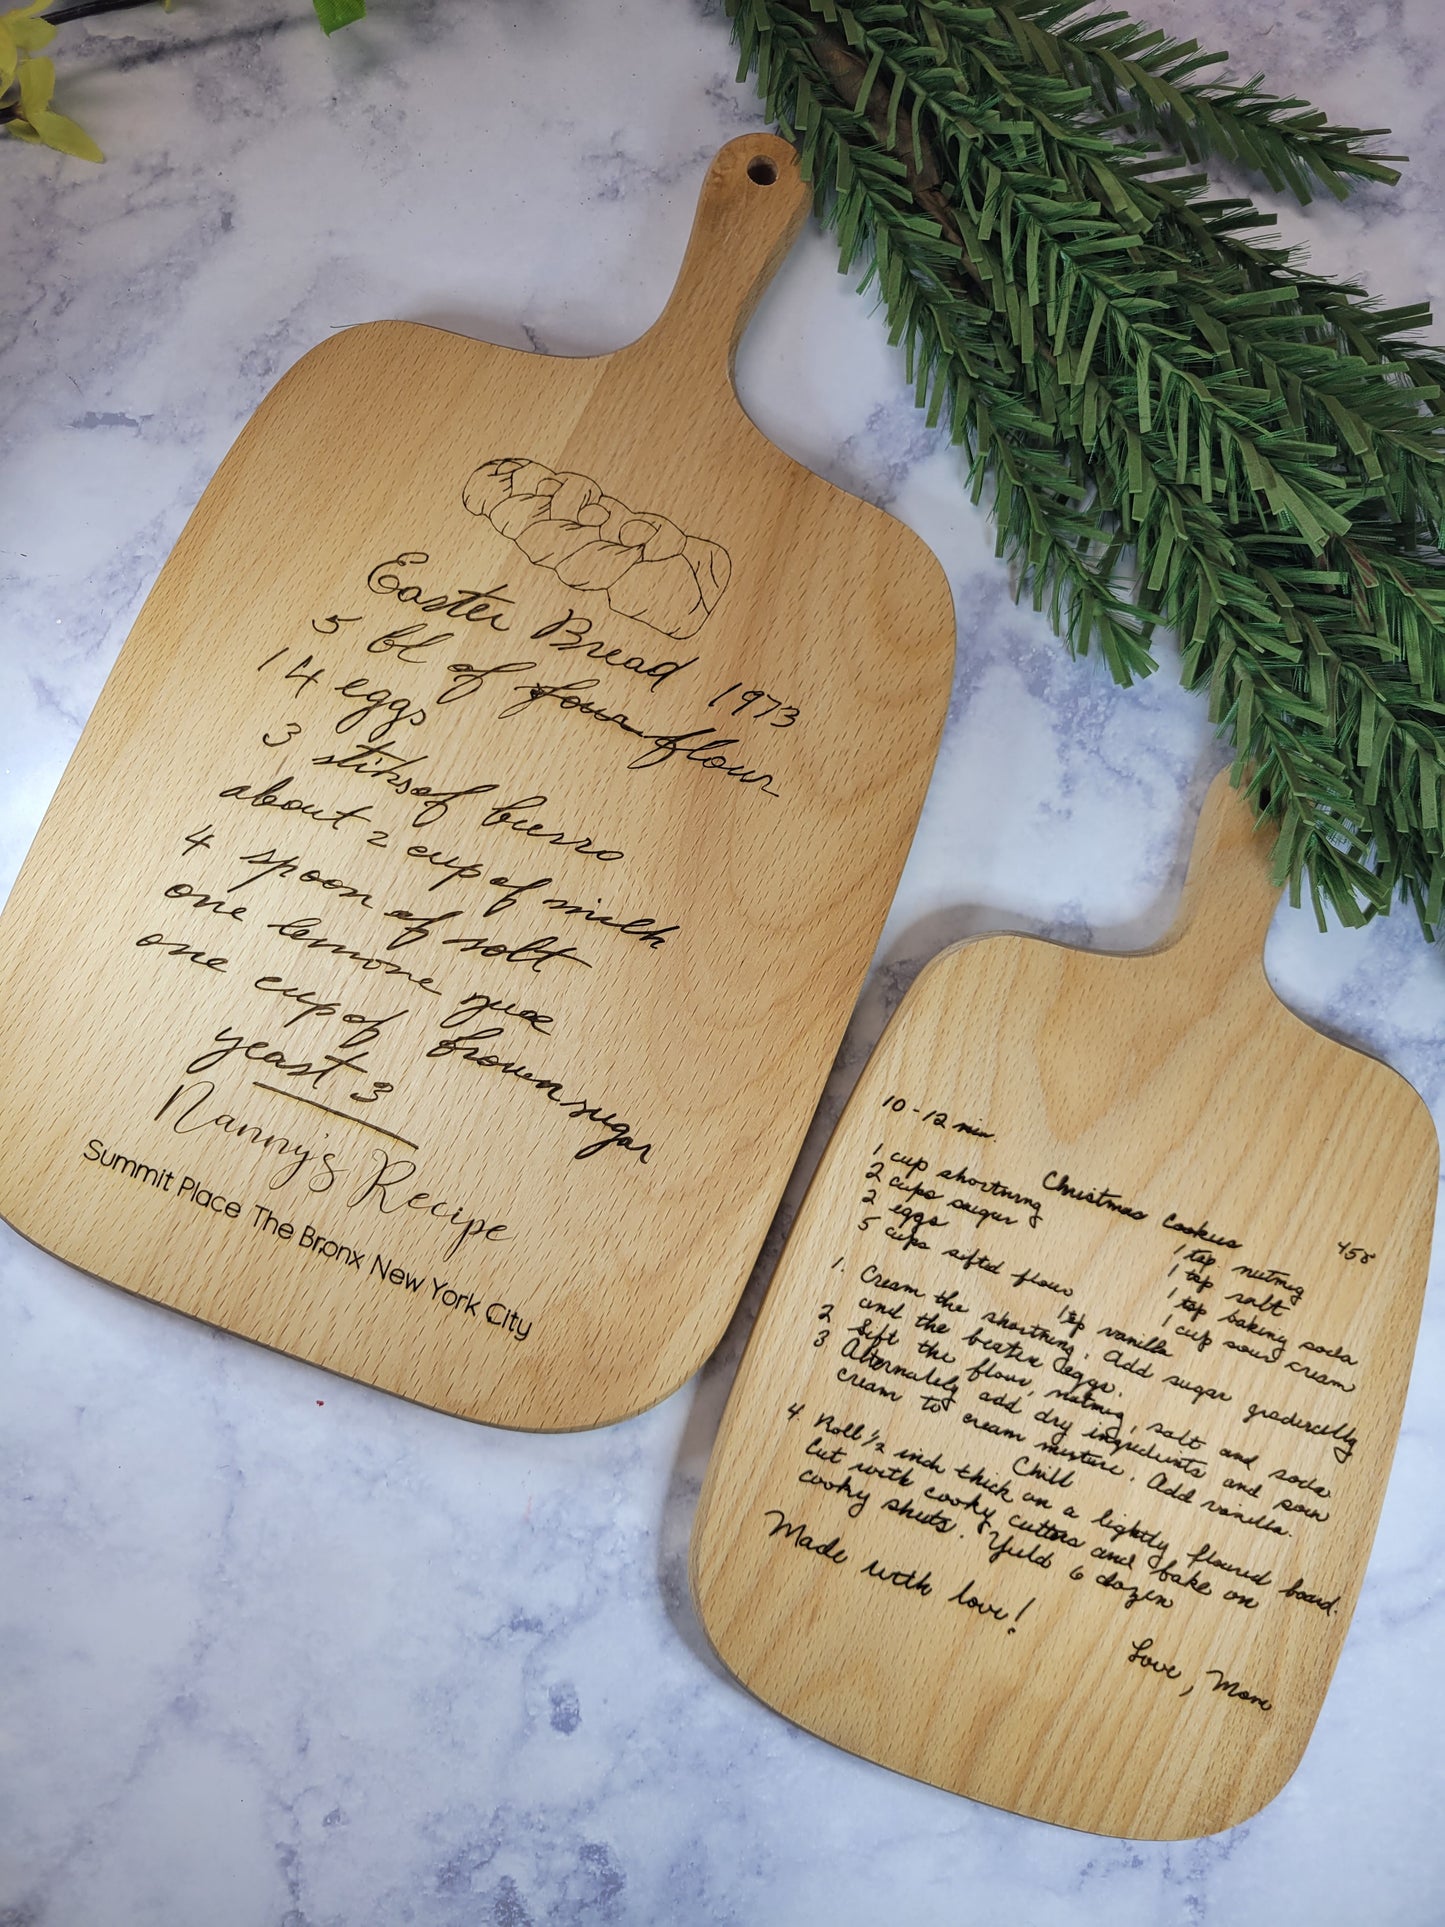 Easter Bread 1973
5 bl of four flour
14 eggs
3 stiks of burro
about 2 cup of milk
4 spoon of solt
one lemone
one cup of brown sugar
yeast 3
Nanny's Recipe
Summit Place The Bronx New York City
10-12 min.
Christmas Cookies
1 cup shortning
2 cups sugar
2 eggs
5 cups sifted flour
1 tsp vanilla
1 tsp. nutmeg
1 tsp salt
1 tsp baking soda
1 cup sour cream
1. Cream the shortning. Add sugar gradercally
and the beaten eggs.
2 Sift the flour, nutmeg, salt and soda
3 Alternately add dry ingredients and sour
cream to cream mixture. Add vanilla.
Chill
4. Roll 1/2 inch thick on a lightly floured board.
Cut with cooky cutters and bake on
cooky sheets. Yield 6 dozen
Made with love!
Love, Mom